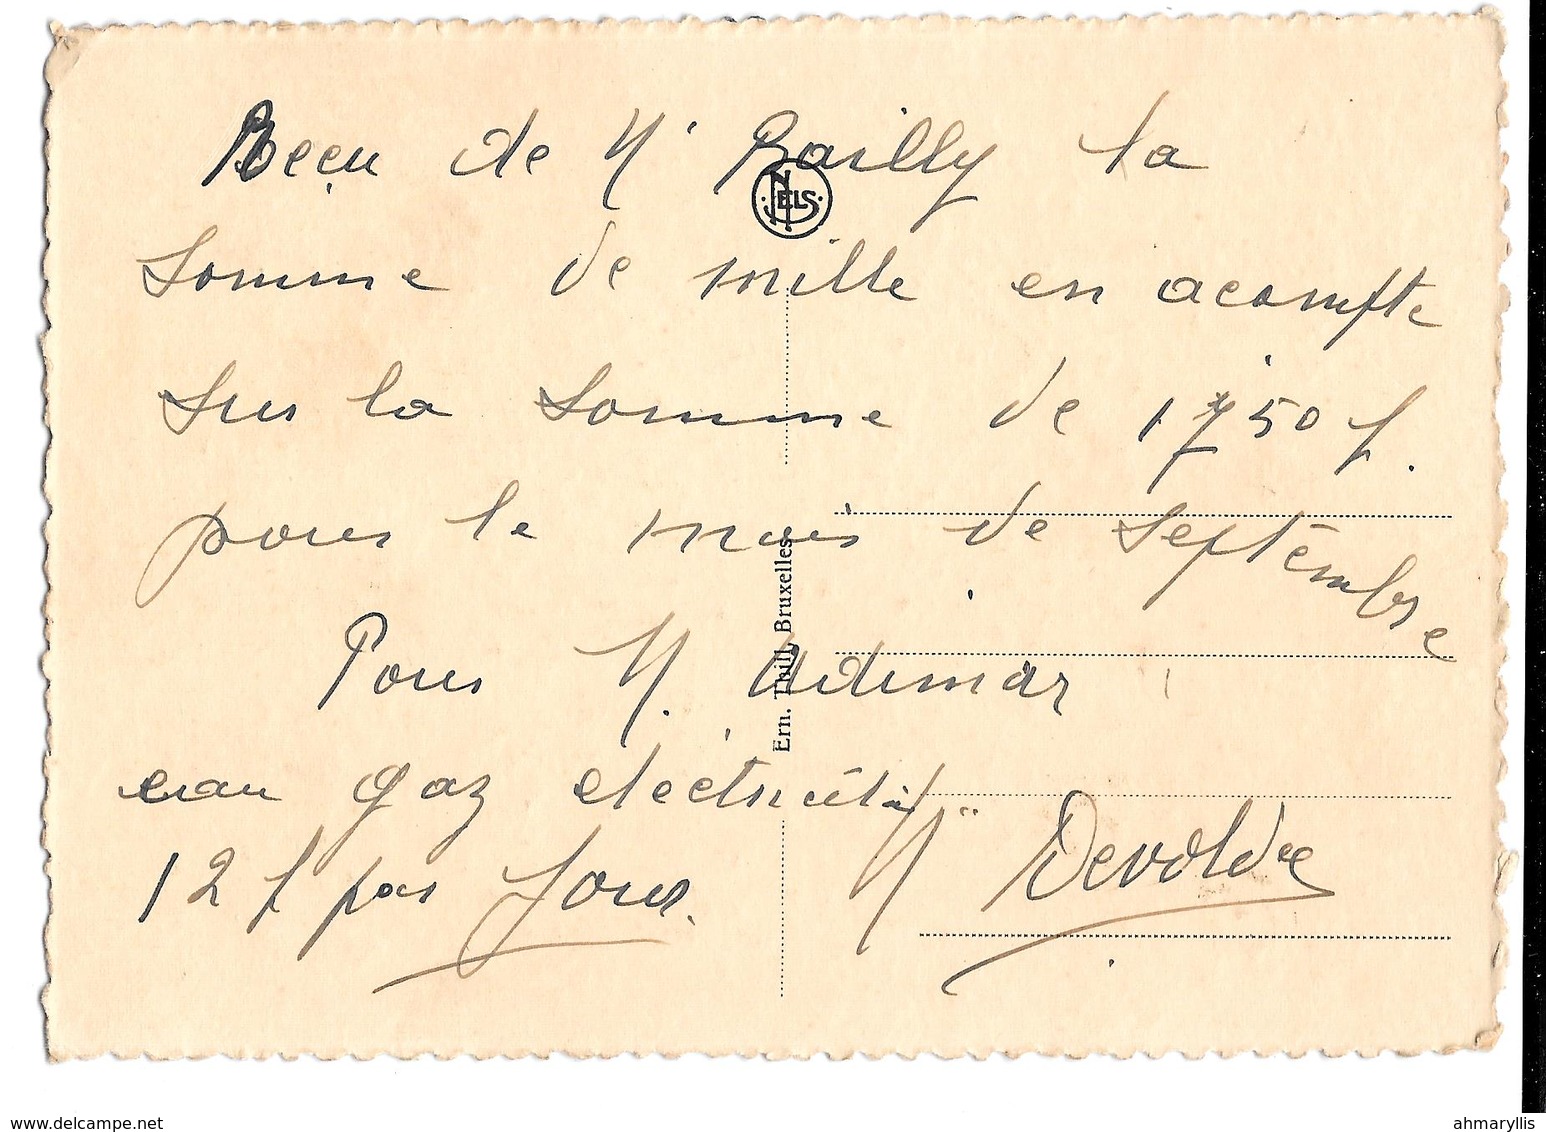 Reçu de Mr Bailly la
somme de mille en acompte
sur la somme de 1750 f.
pour le mois de Septembre
Pour M.
eau gaz electricité
12 f par Jour.
M Devoldre
NELS
Ern. Thill, Bruxelles
www.delcampe.net
ahmaryllis